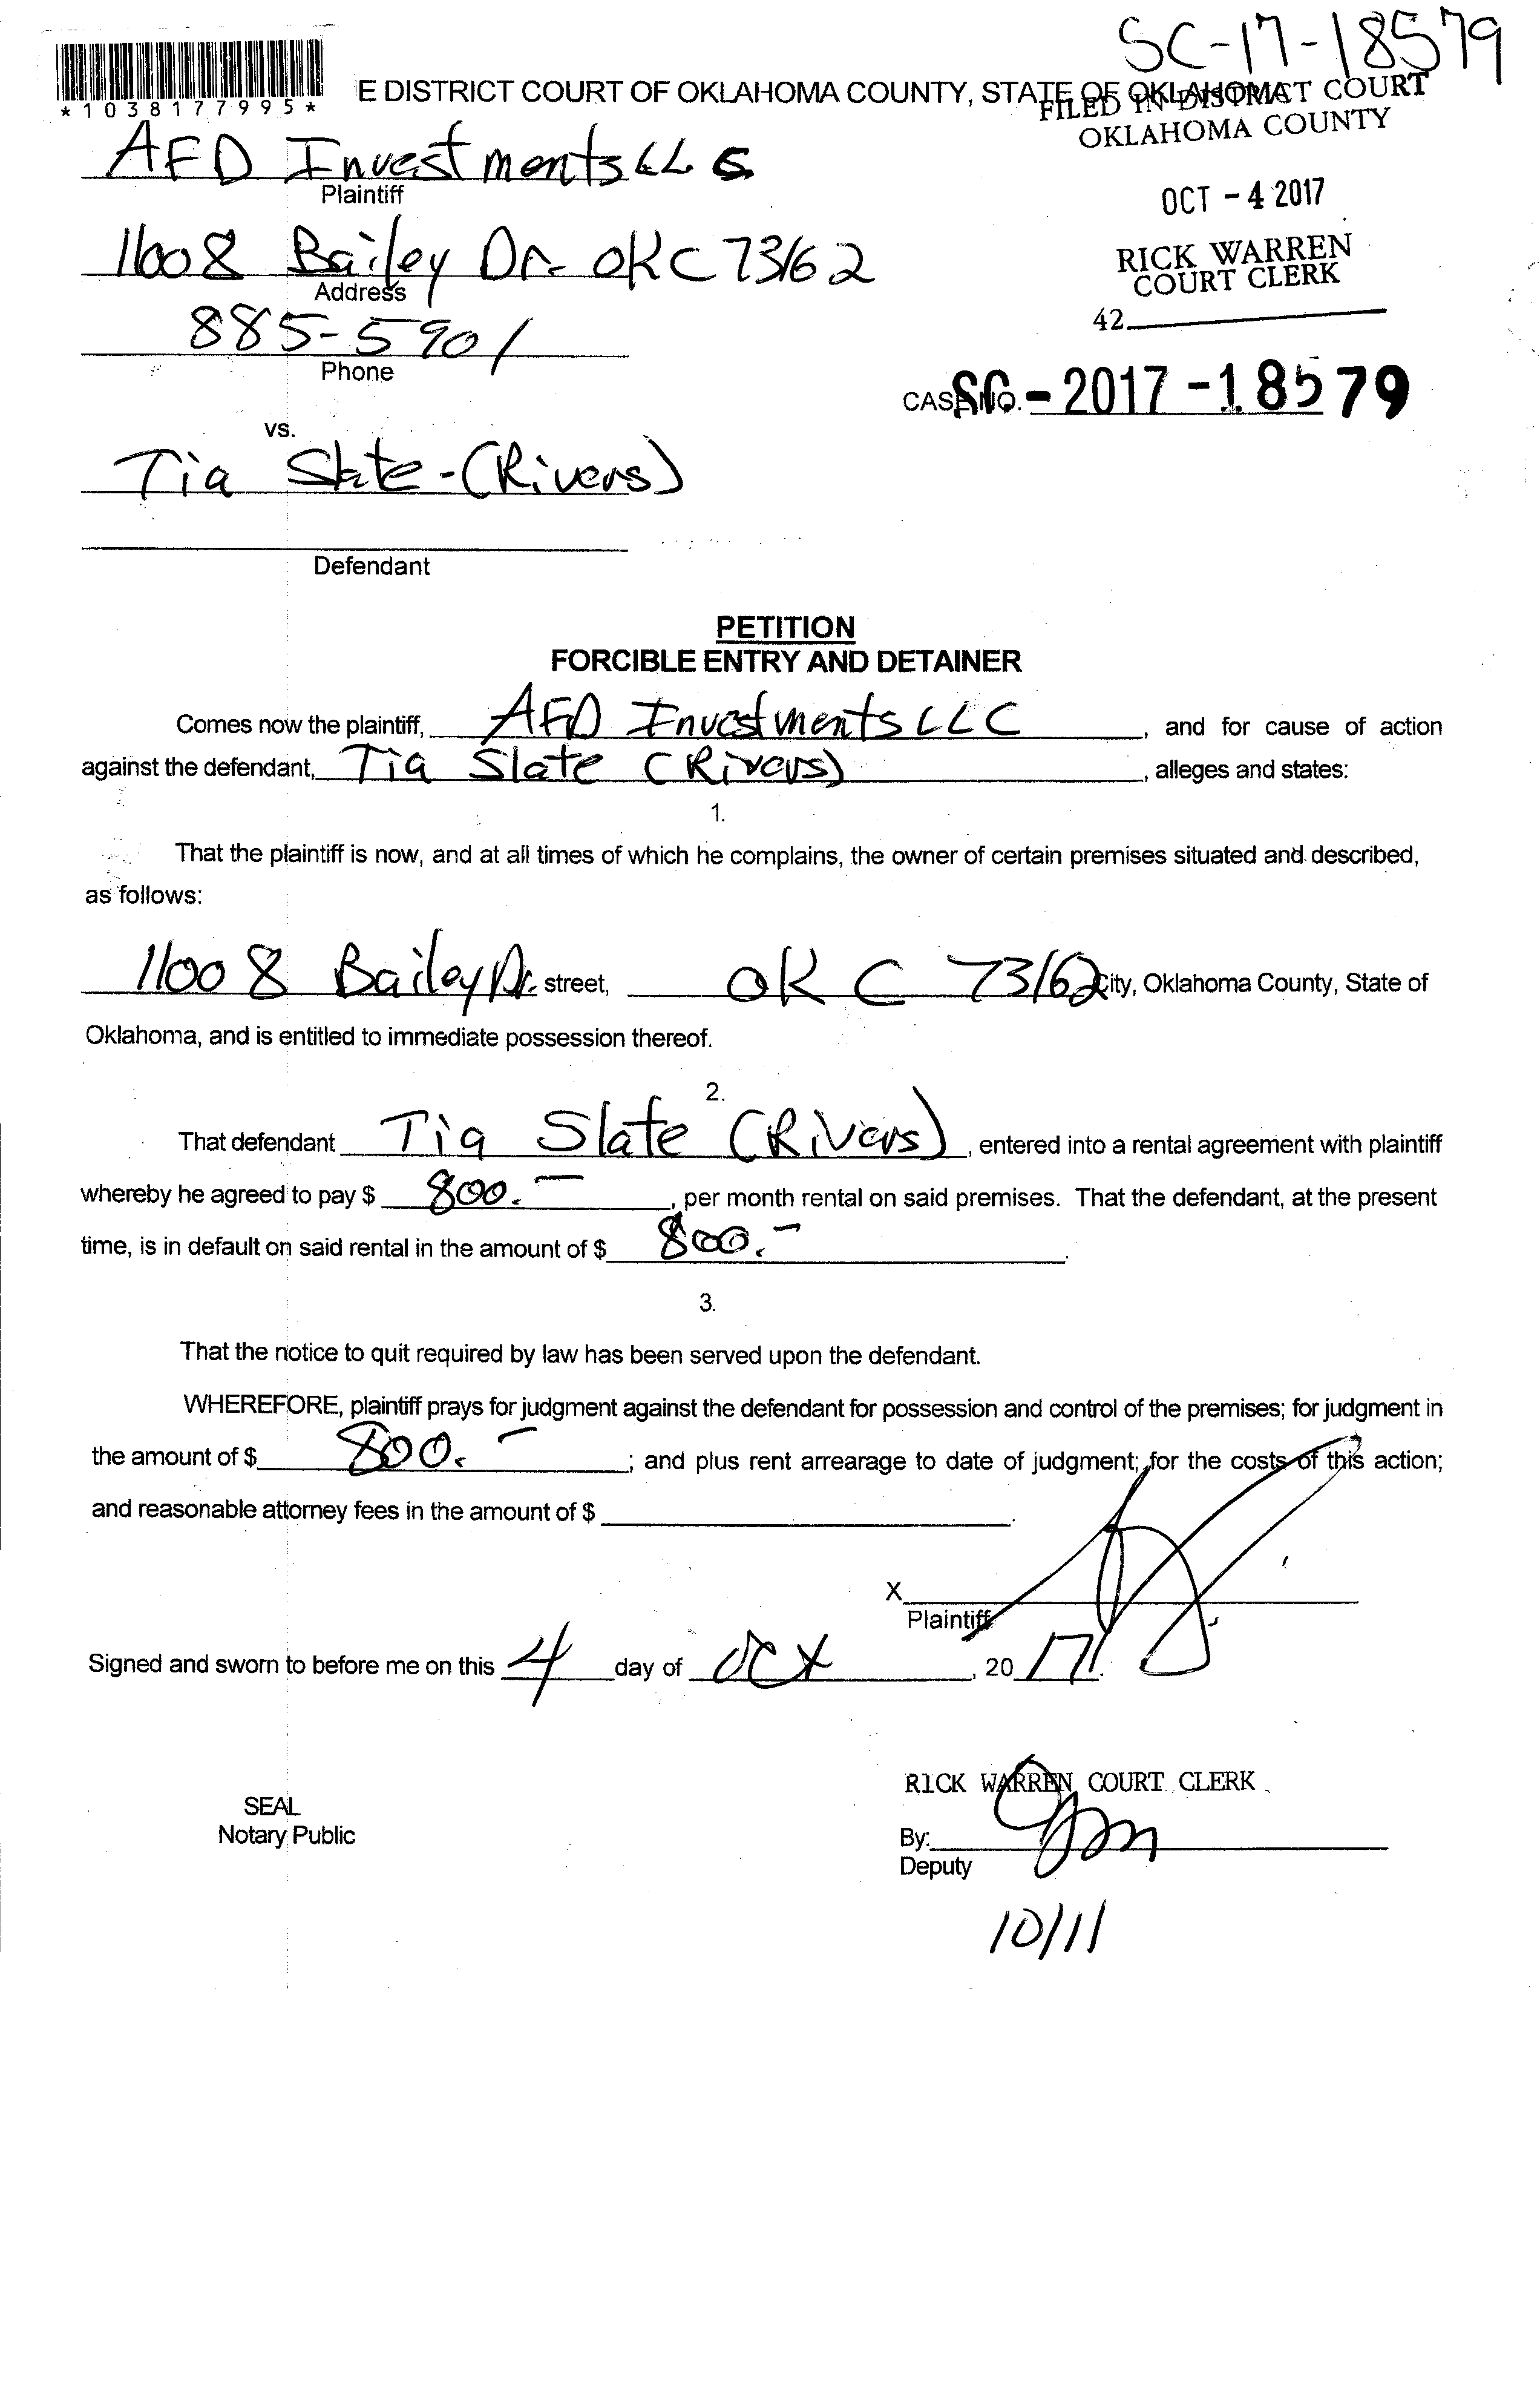 SC-17-18579
*1038177995*
E DISTRICT COURT OF OKLAHOMA COUNTY, STATE OF OKLAHOMA
FILED IN DISTRICT COURT
OKLAHOMA COUNTY
AFD Investments LLC
Plaintiff
OCT - 4 2017
11008 Bailey Dr. OKC 73162
Address
RICK WARREN
COURT CLERK
42
885-5901
Phone
CASE NO. SC - 2017 - 18579
vs.
Tia Slate - (Rivers)
Defendant
PETITION
FORCIBLE ENTRY AND DETAINER
Comes now the plaintiff, AFD Investments LLC, and for cause of action
against the defendant, Tia Slate (Rivers), alleges and states:
1.
That the plaintiff is now, and at all times of which he complains, the owner of certain premises situated and described,
as follows:
11008 Bailey Dr. street, OKC 73162 City, Oklahoma County, State of
Oklahoma, and is entitled to immediate possession thereof.
2.
That defendant Tia Slate (Rivers), entered into a rental agreement with plaintiff
whereby he agreed to pay $ 800.-, per month rental on said premises. That the defendant, at the present
time, is in default on said rental in the amount of $ 800.-.
3.
That the notice to quit required by law has been served upon the defendant.
WHEREFORE, plaintiff prays for judgment against the defendant for possession and control of the premises; for judgment in
the amount of $ 800.-; and plus rent arrearage to date of judgment; for the costs of this action;
and reasonable attorney fees in the amount of $ .
X
Plaintiff
Signed and sworn to before me on this 4 day of Oct, 2017.
RICK WARREN COURT CLERK
SEAL
Notary Public
By:
Deputy
10/11